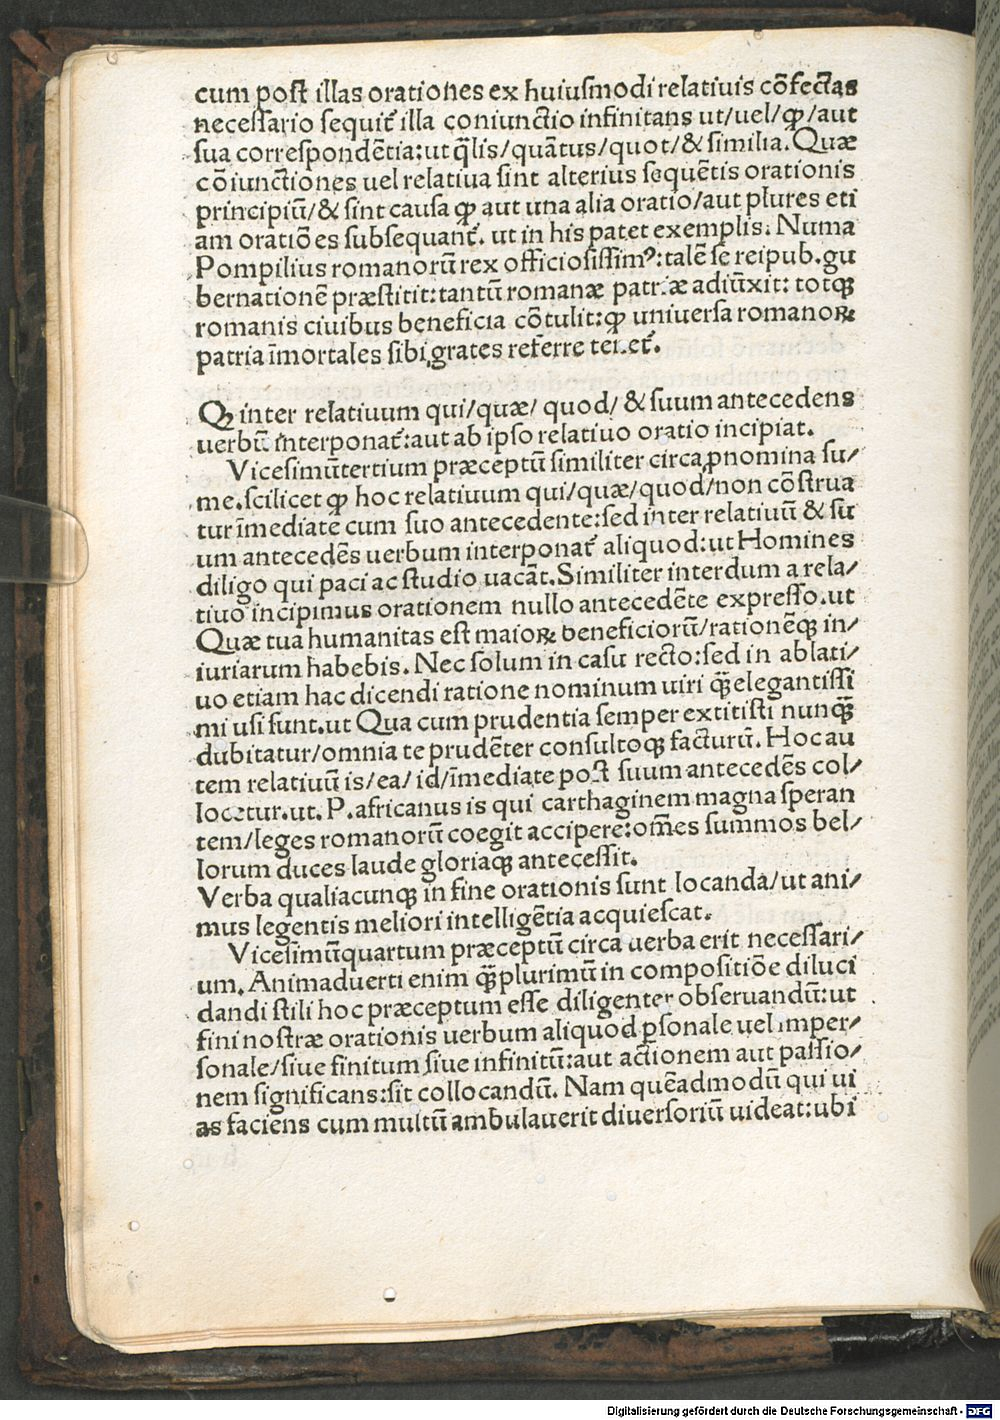 cum poſt illas orationes ex huiuſmodi relatiuis cōfectas
neceſſario ſequit᷑ illa coniunctio infinitans ut/uel/ꝙ/aut
ſua correſpondētia:ut q̄lis/quātus/quot/& ſimilia.Quæ
cōiunctiones uel relatiua ſint alterius ſequētis orationis
principiū/& ſint cauſa ꝙ aut una alia oratio/aut plures eti
am oratiōes ſubſequant᷑. ut in his patet exemplis. Numa
Pompilius romanorū rex officioſiſſimꝰ:talē ſe reipub.gu
bernationē præſtitit:tantū romanæ patriæ adiūxit: totqꝫ
romanis ciuibus beneficia cōtulit:ꝙ uniuerſa romanoꝝ
patria īmortales ſibi grates referre tenet᷑.
Qꝫ inter relatiuum qui/quæ/ quod/ & ſuum antecedens
uerbū interponat᷑:aut ab ipſo relatiuo oratio incipiat.
Viceſimūtertium præceptū ſimiliter circa ꝓnomina ſu/
me.ſcilicet ꝙ hoc relatiuum qui/quæ/quod/non cōſtrua
tur īmediate cum ſuo antecedente:ſed inter relatiuū & ſu
um antecedēs uerbum interponat᷑ aliquod:ut Homines
diligo qui paci ac ſtudio uacāt.Similiter interdum a rela/
tiuo incipimus orationem nullo antecedēte expreſſo.ut
Quæ tua humanitas eſt maioꝝ beneficiorū/rationēqꝫ in/
iuriarum habebis. Nec ſolum in caſu recto:ſed in ablati/
uo etiam hac dicendi ratione nominum uiri qꝫ̄ elegantiſſi
mi uſi ſunt.ut Qua cum prudentia ſemper extitiſti nunqꝫ̄
dubitatur/omnia te prudēter conſultoqꝫ facturū. Hoc au
tem relatiuū is/ea/ id/īmediate poſt ſuum antecedēs col/
locetur.ut. P.africanus is qui carthaginem magna ſperan
tem/leges romanorū coegit accipere:om̄es ſummos bel/
lorum duces laude gloriaqꝫ anteceſſit.
Verba qualiacunqꝫ in fine orationis ſunt locanda/ut ani/
mus legentis meliori intelligētia acquieſcat.
Viceſimūquartum præceptū circa uerba erit neceſſari/
um. Animaduerti enim qꝫ̄plurimū in compoſitiōe diluci
dandi ſtili hoc præceptum eſſe diligenter obſeruandū:ut
fini noſtræ orationis uerbum aliquod ꝑſonale uel imper/
ſonale/ſiue finitum ſiue infinitū:aut actionem aut paſſio/
nem significans:ſit collocandū. Nam quēadmodū qui ui
as faciens cum multū ambulauerit diuerſoriū uideat:ubi
Digitalisierung gefördert durch die Deutsche Forschungsgemeinschaft - DFG